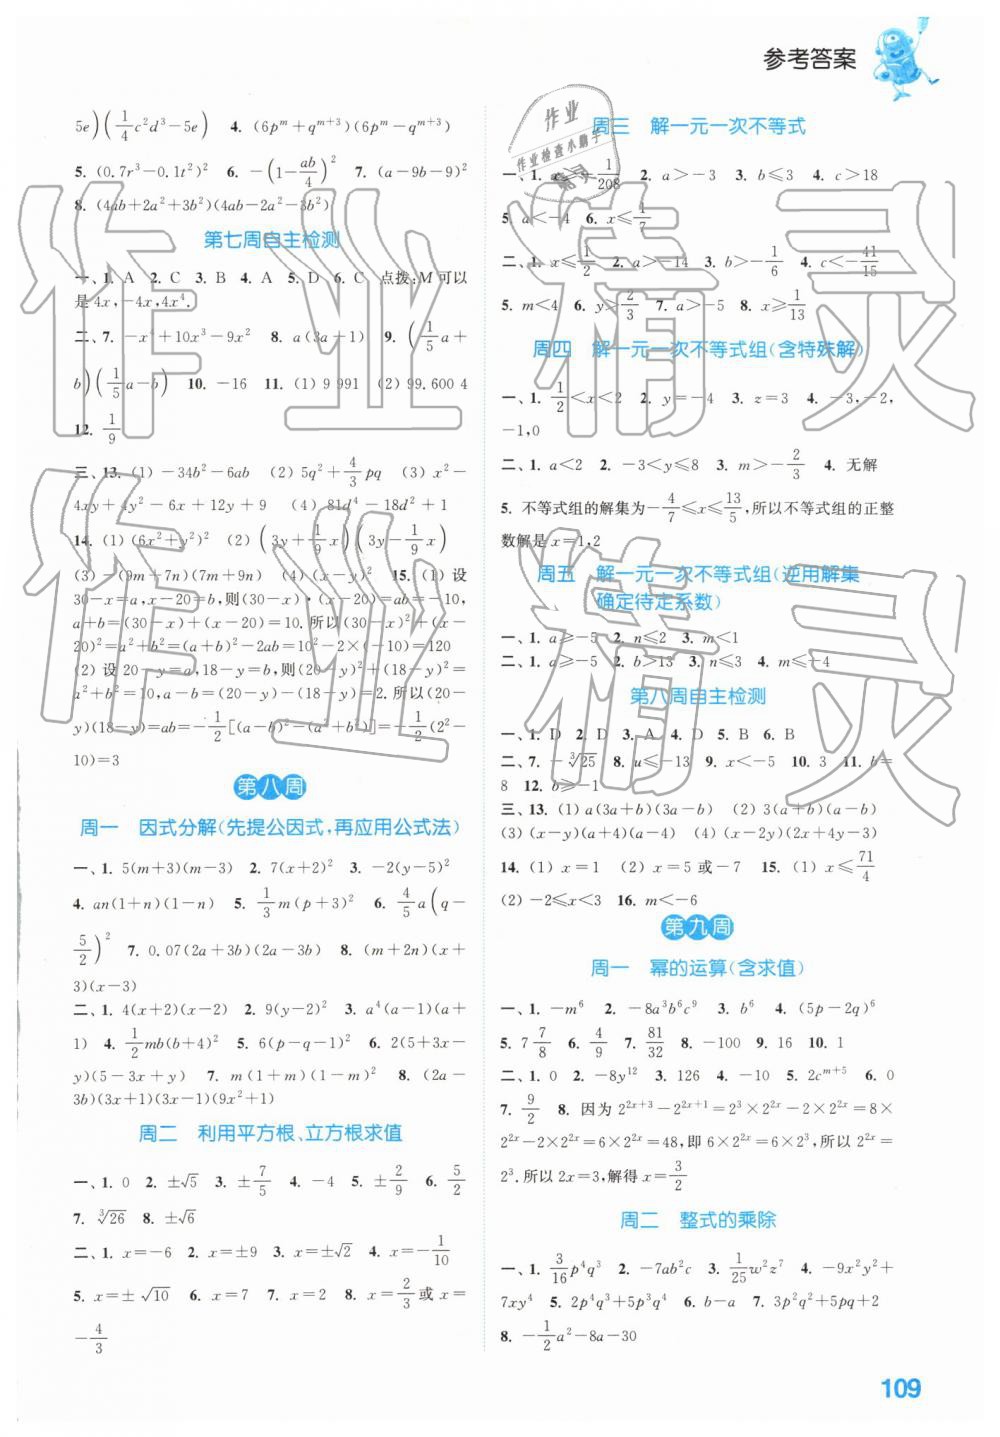 参考答案
5e)(1/4c²d³－5e)　4. (6pᵐ＋qᵐ⁺³)(6pᵐ－qᵐ⁺³)
5. (0.7r³－0.1t²)²　6. －(1－ab/4)²　7. (a－9b－9)²
8. (4ab＋2a²＋3b²)(4ab－2a²－3b²)
第七周自主检测
一、1. A　2. C　3. B　4. A　5. D　6. C　点拨：M可以
是4x，－4x，4x⁴.
二、7. －x⁴＋10x³－9x²　8. a(3a＋1)　9. (1/5a＋
b)(1/5a－b)　10. －16　11. (1) 9 991　(2) 99.600 4
12. 1/9
三、13. (1) －34b²－6ab　(2) 5q²＋4/3pq　(3) x²－
4xy＋4y²－6x＋12y＋9　(4) 81d⁴－18d²＋1
14. (1) (6x²＋y²)²　(2) (3y＋1/9x)(3y－1/9x)
(3) －(9m＋7n)(7m＋9n)　(4) (x－y)⁴　15. (1) 设
30－x＝a，x－20＝b，则(30－x)·(x－20)＝ab＝－10，
a＋b＝(30－x)＋(x－20)＝10. 所以(30－x)²＋(x－
20)²＝a²＋b²＝(a＋b)²－2ab＝10²－2×(－10)＝120
(2) 设20－y＝a，18－y＝b，则(20－y)²＋(18－y)²＝
a²＋b²＝10，a－b＝(20－y)－(18－y)＝2. 所以(20－
y)(18－y)＝ab＝－1/2[(a－b)²－(a²＋b²)]＝－1/2(2²－
10)＝3
第八周
周一　因式分解(先提公因式，再应用公式法)
一、1. 5(m＋3)(m－3)　2. 7(x＋2)²　3. －2(y－5)²
4. an(1＋n)(1－n)　5. 1/3m(p＋3)²　6. 4/5a(q－
5/2)²　7. 0.07(2a＋3b)(2a－3b)　8. (m＋2n)(x＋
3)(x－3)
二、1. 4(x＋2)(x－2)　2. 9(y－2)²　3. a⁴(a－1)(a＋
1)　4. 1/2mb(b＋4)²　5. 6(p－1)²　6. 2(5＋3x－
y)(5－3x＋y)　7. m(1＋m²)(1－m²)　8. (2a－
3b)(3x＋1)(3x－1)(9x²＋1)
周二　利用平方根、立方根求值
一、1. 0　2. ±√5　3. ±7/5　4. －4　5. ±2/9　6. 5/2
7. ³√26　8. ±√6
二、1. x＝－6　2. x＝±9　3. x＝±√2　4. x＝－1/10
5. x＝±√10　6. x＝7　7. x＝2　8. x＝2/3或x＝
－4/3
周三　解一元一次不等式
一、1. x＝－1/208　2. a＞－3　3. b≤3　4. c＞18
5. a＜－4　6. x≤1/7
二、1. x≤1/2　2. a＞－14　3. b＞－1/6　4. c＜－41/15
5. m＜4　6. y＞2/3　7. a＞－5　8. x≥1/13
周四　解一元一次不等式组(含特殊解)
一、1. 1/2＜x＜2　2. y＝－4　3. z＝3　4. －3，－2，
－1，0
二、1. a＜2　2. －3＜y≤8　3. m＞－2/3　4. 无解
5. 不等式组的解集为－4/7≤x≤13/5，所以不等式组的正整
数解是x＝1，2
周五　解一元一次不等式组(逆用解集
确定待定系数)
一、1. a＞－5　2. n≤2　3. m＜1
二、1. a≥－5　2. b＞13　3. n≤3　4. m≤－4
第八周自主检测
一、1. D　2. D　3. A　4. D　5. B　6. B
二、7. －³√25　8. u≤－13　9. x＜－3　10. 3　11. b＝
8　12. b≥－1
三、13. (1) a(3a＋b)(3a－b)　(2) 3(a＋b)(a－b)
(3) (x－y)(a＋4)(a－4)　(4) (x－2y)(2x＋4y－3)
14. (1) x＝1　(2) x＝5或－7　15. (1) x≤71/4
(2) －2≤x＜3　16. m＜－6
第九周
周一　幂的运算(含求值)
一、1. －m⁶　2. －8a³b⁶c⁹　3. b⁶　4. (5p－2q)⁶
5. 7 7/8　6. 4/9　7. 81/32　8. －100　9. 16　10. 1
二、1. 0　2. －8y¹²　3. 126　4. －10　5. 2cᵐ⁺⁵　6. 0
7. 9/2　8. 因为2²ˣ⁺³－2²ˣ⁺¹＝2³×2²ˣ－2×2²ˣ＝8×
2²ˣ－2×2²ˣ＝6×2²ˣ＝48，即6×2²ˣ＝6×2³，所以2²ˣ＝
2³. 所以2x＝3，解得x＝3/2
周二　整式的乘除
一、1. 3/16p⁴q³　2. －7ab²c　3. 1/25w²z⁷　4. －9x²y²＋
7xy⁴　5. 2p⁴q³＋5p³q⁴　6. b－a　7. 3p²q²＋5pq＋2
8. －1/2a²－8a－30
109